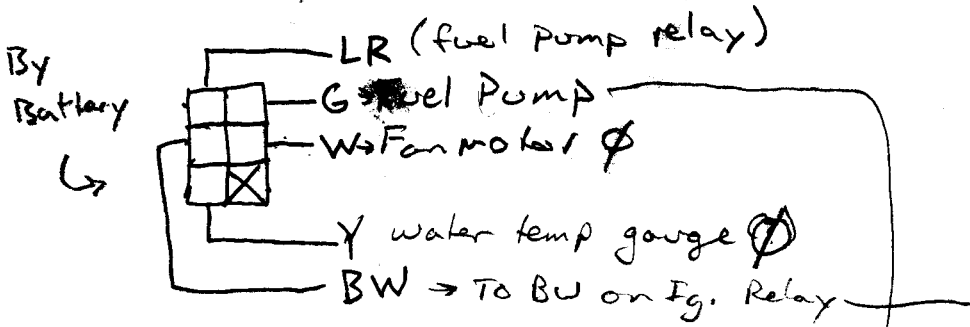 By
Battery
LR (fuel pump relay)
G Fuel Pump
W→Fan motor Ø
Y water temp gauge Ø
BW → To BW on Ig. Relay